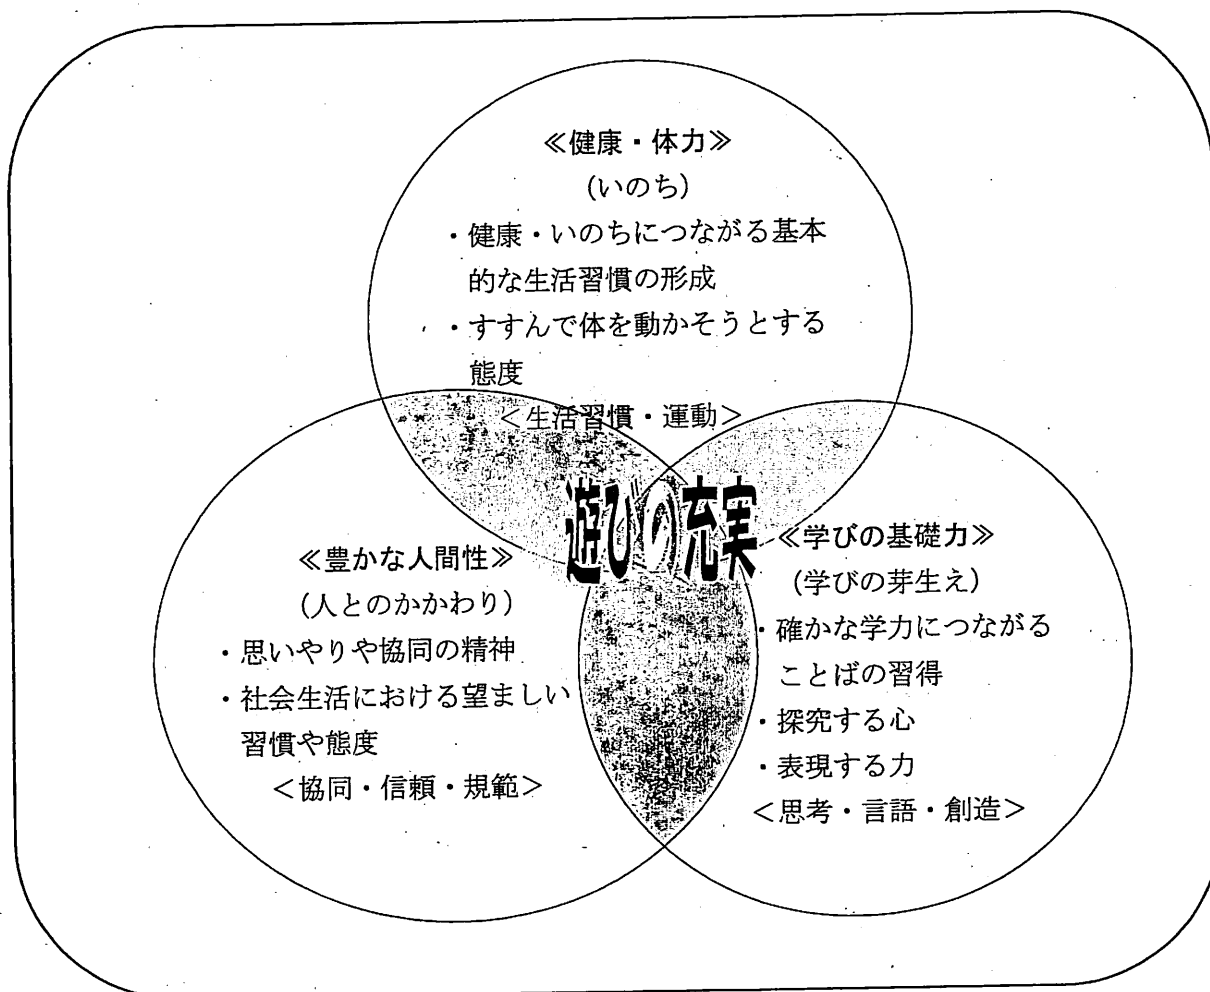 ≪健康・体力≫
(いのち)
・健康・いのちにつながる基本
的な生活習慣の形成
・すすんで体を動かそうとする
態度
＜生活習慣・運動＞
遊びの充実
≪豊かな人間性≫
(人とのかかわり)
・思いやりや協同の精神
・社会生活における望ましい
習慣や態度
＜協同・信頼・規範＞
≪学びの基礎力≫
(学びの芽生え)
・確かな学力につながる
ことばの習得
・探究する心
・表現する力
＜思考・言語・創造＞